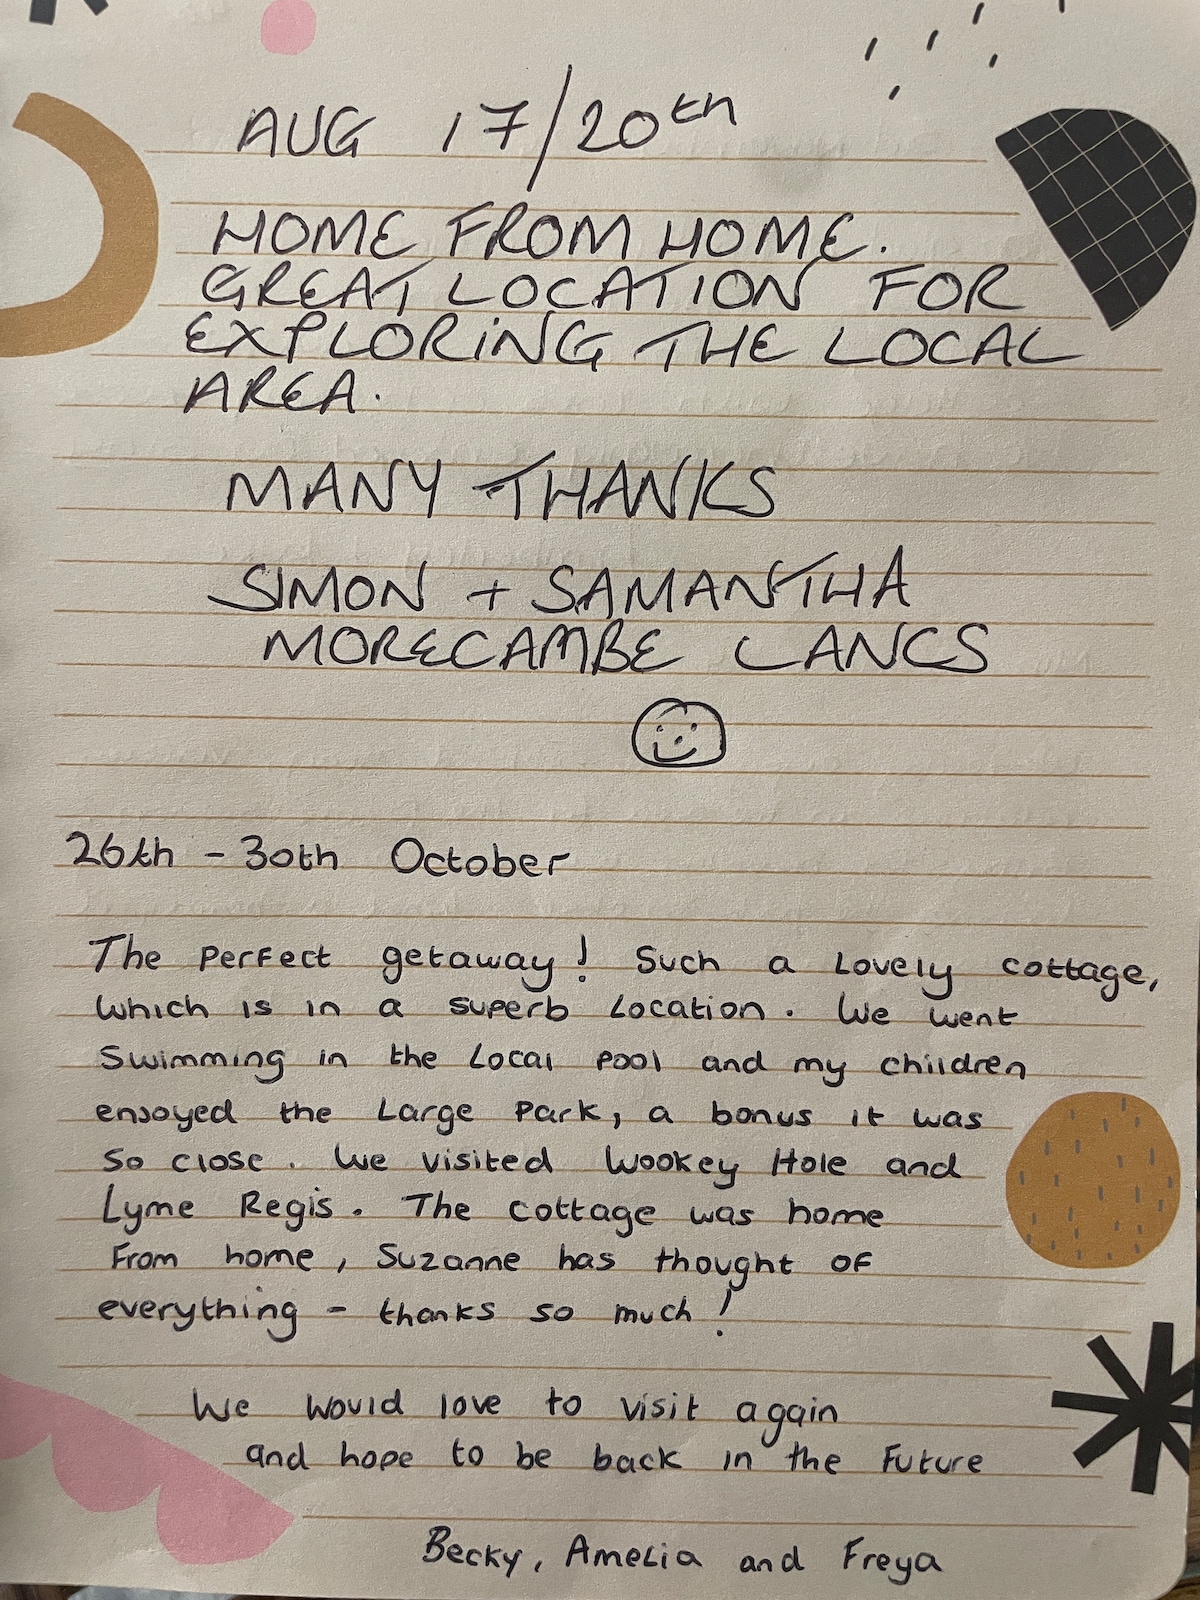 AUG 17/20th
HOME FROM HOME.
GREAT LOCATION FOR
EXPLORING THE LOCAL
AREA.
MANY THANKS
SIMON + SAMANTHA
MORECAMBE LANCS
26th - 30th October
The perfect getaway! Such a lovely cottage,
which is in a superb location. We went
swimming in the local pool and my children
enjoyed the large park, a bonus it was
so close. We visited Wookey Hole and
Lyme Regis. The cottage was home
from home, Suzanne has thought of
everything - thanks so much!
We would love to visit again
and hope to be back in the future
Becky, Amelia and Freya